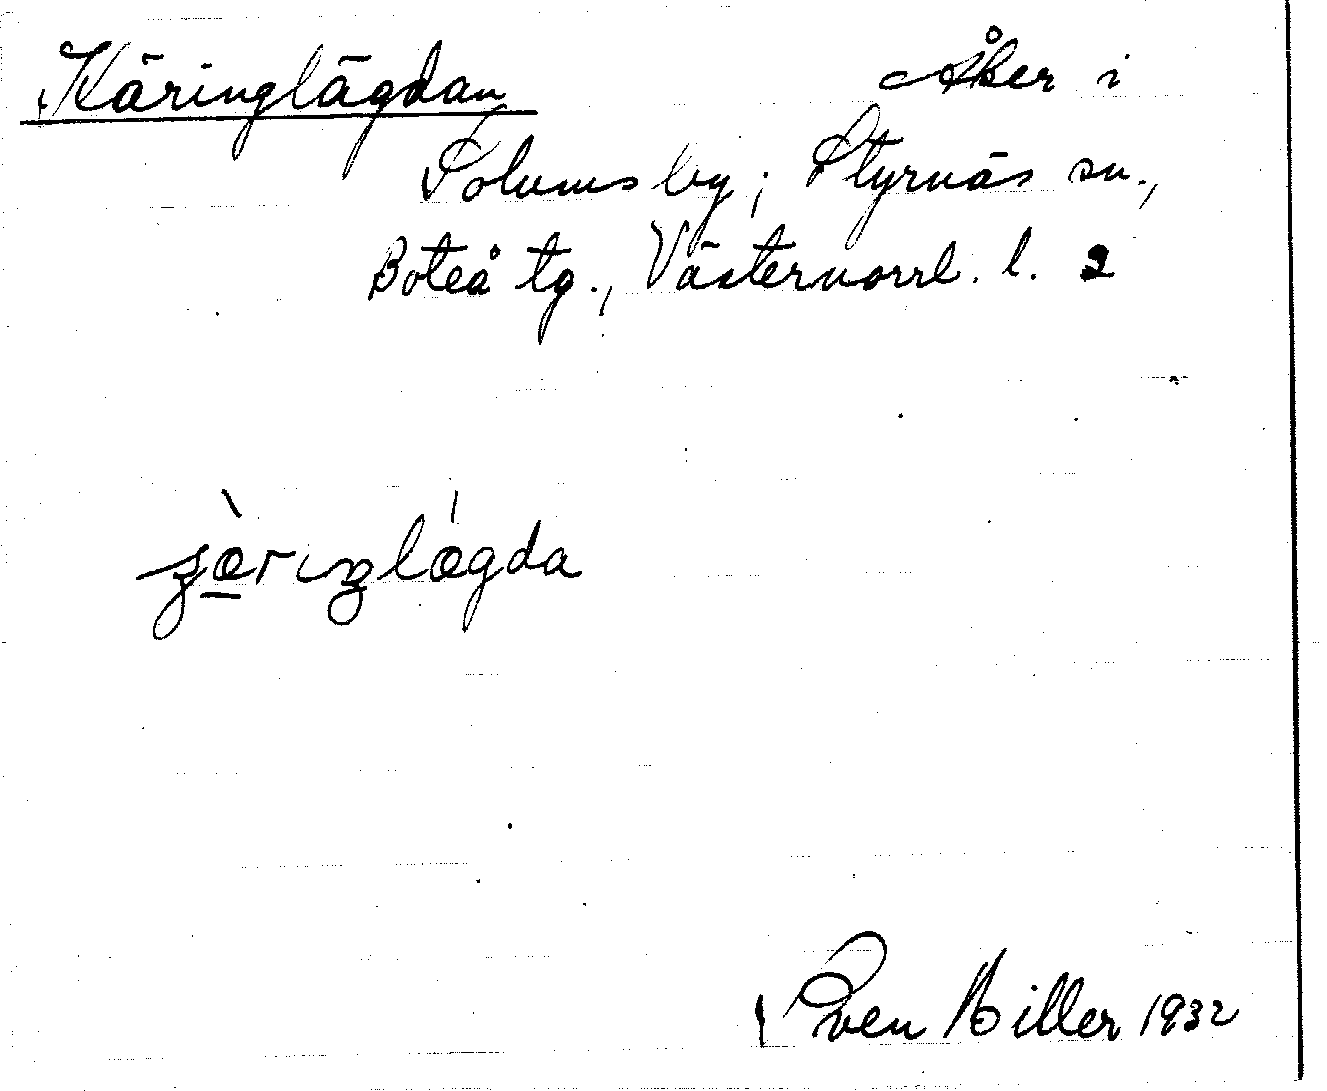 Käringlägdan Åker i
Solums by; Styrnäs sn.,
Boteå tg., Västernorrl. l. 2
Sven Hiller 1932